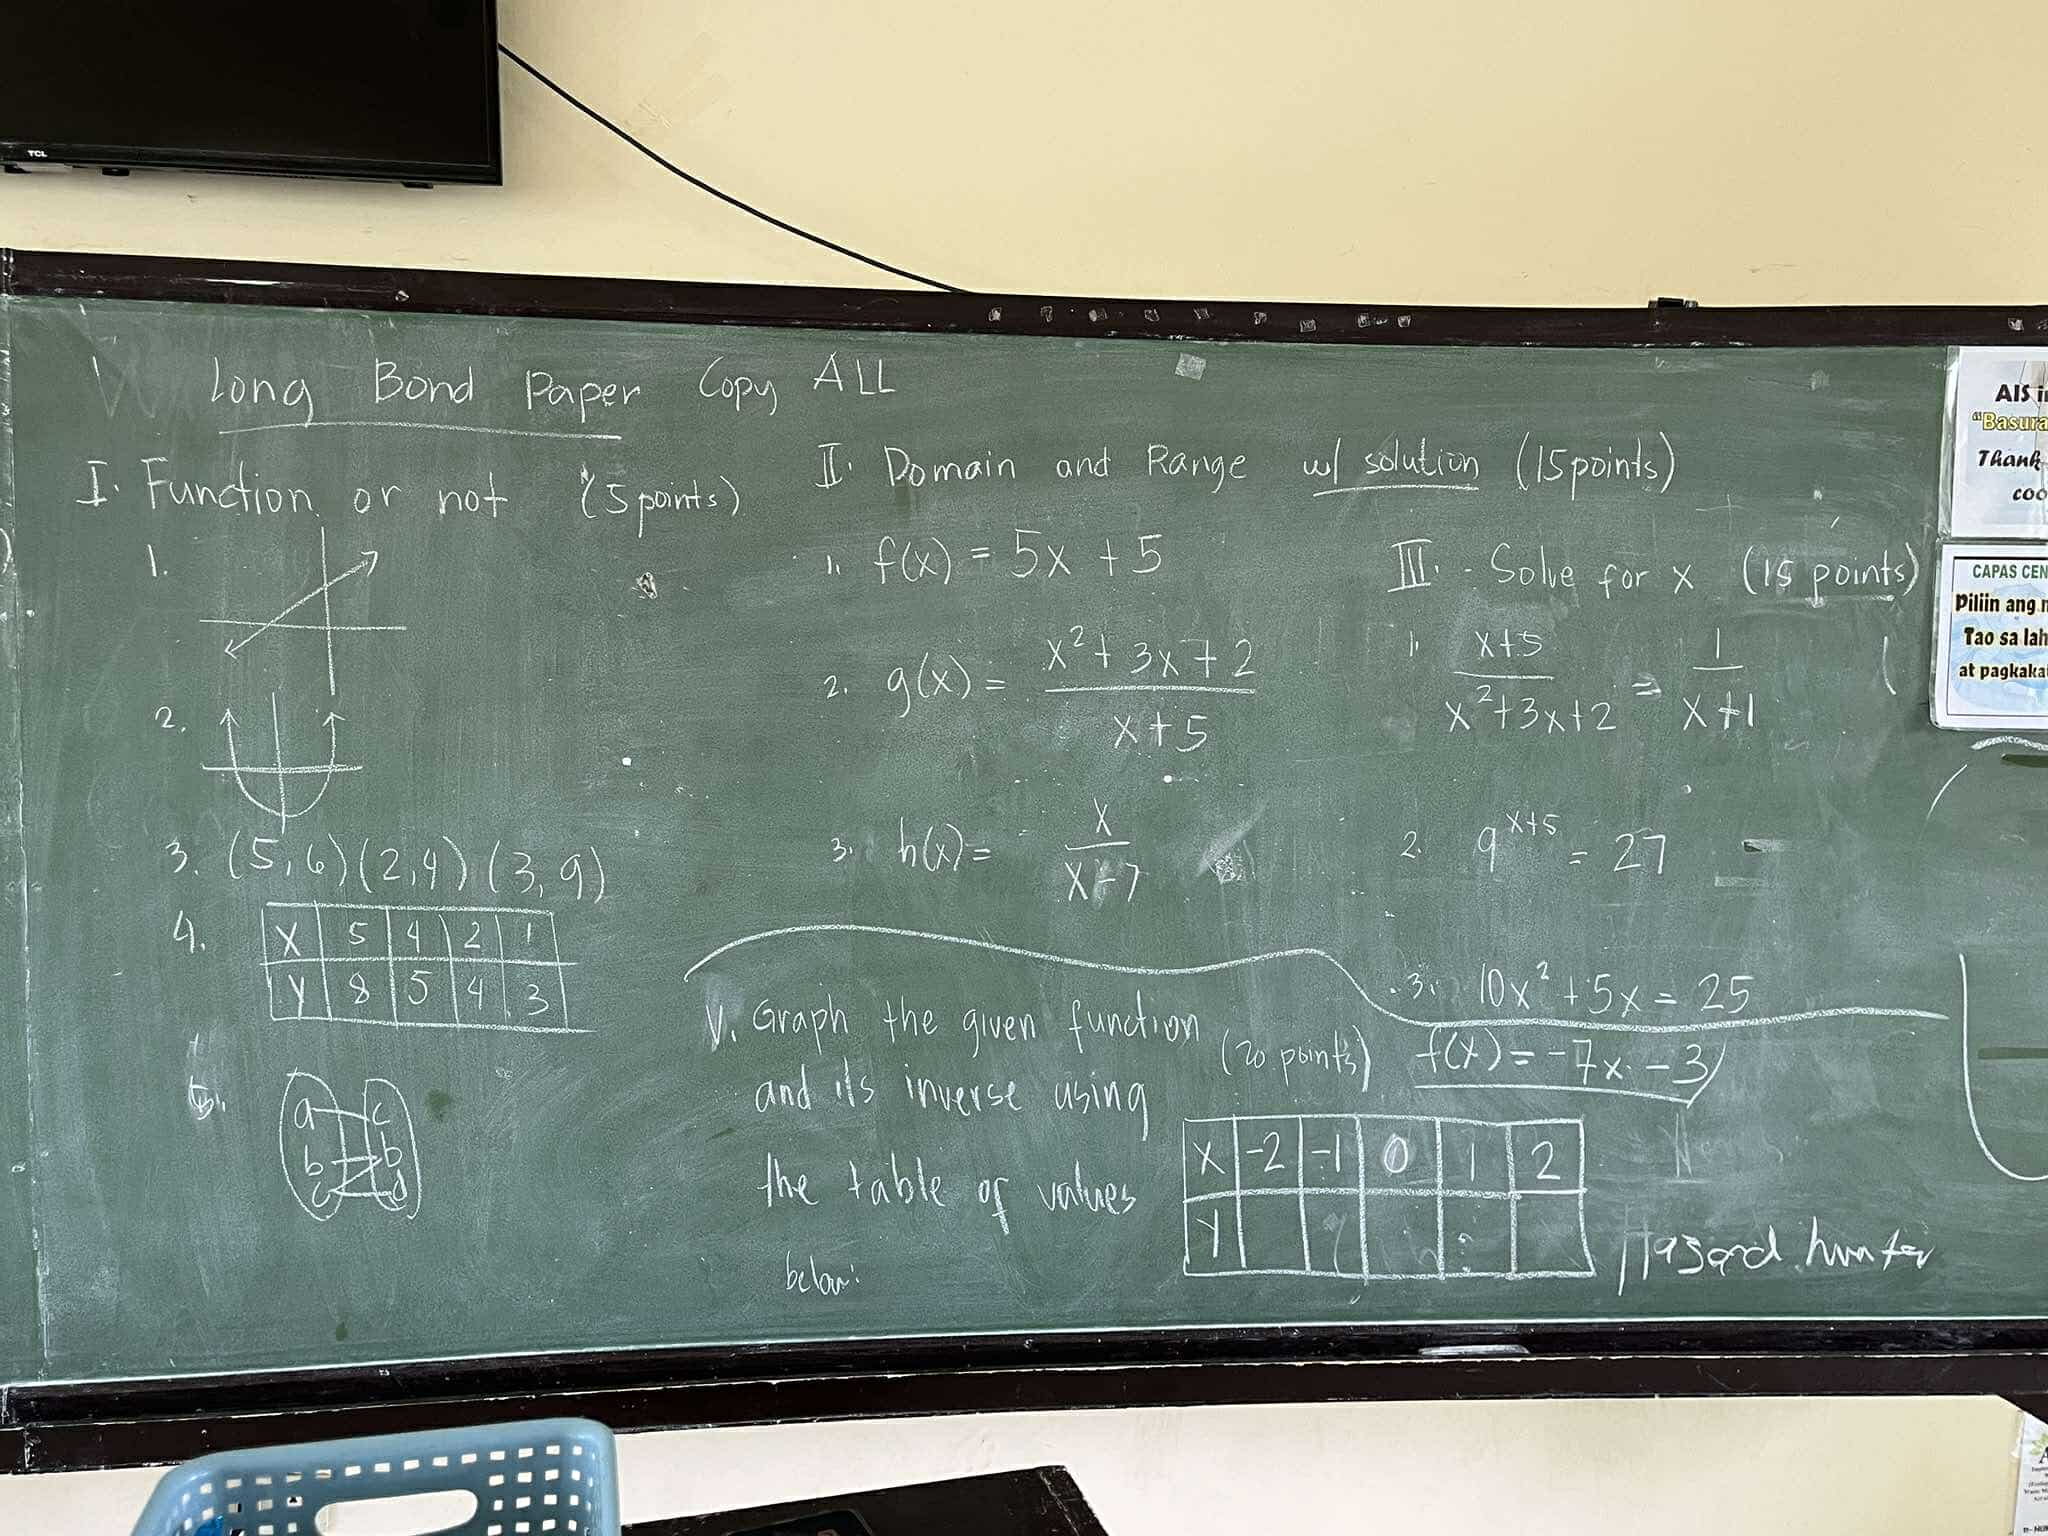 TCL
Long Bond Paper Copy ALL
I. Function or not (5 points)
1.
2.
3. (5,6)(2,4)(3,9)
4.
X 5 4 2 1
Y 8 5 4 3
5.
a c
b b
c d
II. Domain and Range w/ solution (15 points)
1. f(x) = 5x + 5
2. g(x) = x²+3x+2 / x+5
3. h(x) = x / x-7
III. Solve for x (15 points)
1. x+5 / x²+3x+2 = 1 / x+1
2. 9^x+5 = 27
3. 10x²+5x = 25
V. Graph the given function
and its inverse using
the table of values
below:
(20 points)
f(x) = -7x - 3
X -2 -1 0 1 2
Y
Hazard hunter
AIS
"Basura
Thank
CAPAS CEN
Piliin ang
Tao sa lah
at pagkaka